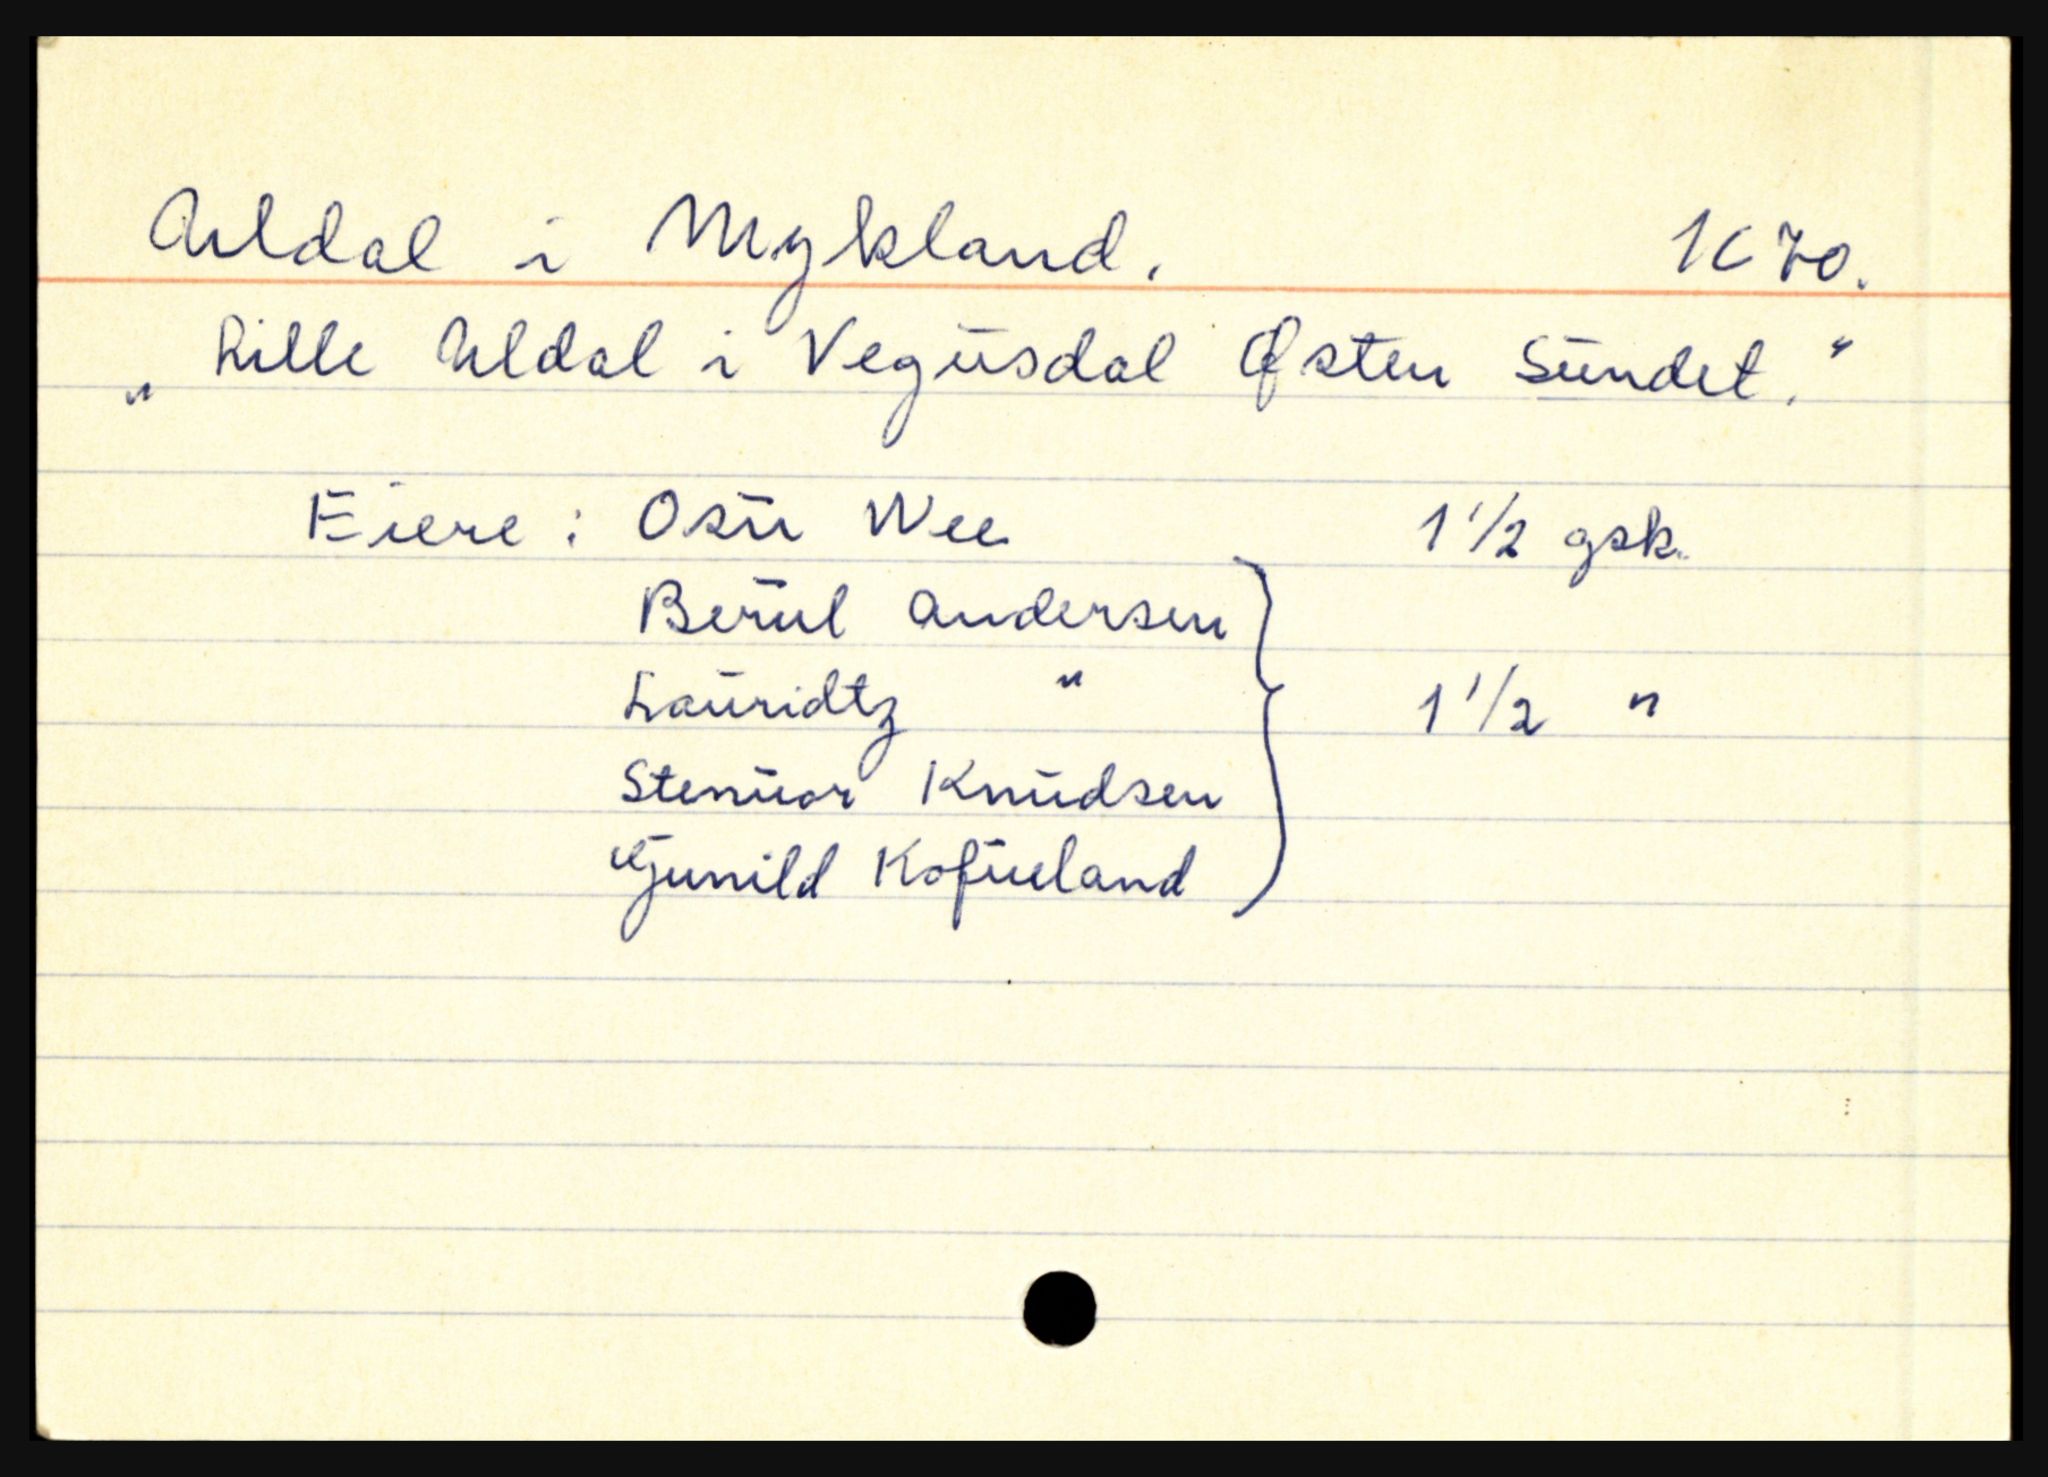 Aldal i Mykland. 1670.
„Lille Aldal i Vegusdal Østen Sundet.“
Eiere: Osu Wee 1 1/2 gsk.
Berul Andersen
Lauridtz " 1 1/2 "
Stenuor Knudsen
Gunild Kofueland